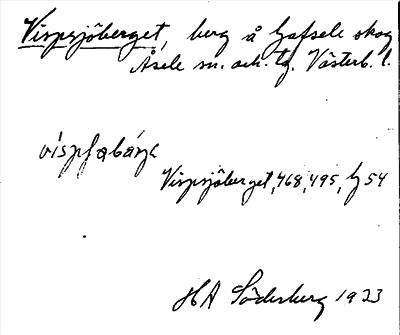 Vispsjöberget, berg å Gafsele skog
Åsele sn. och tg. Västerb. l.
víspʃøbǽrje
Vispsjöberget, 468, 495, bj 54
HA Söderberg 1923